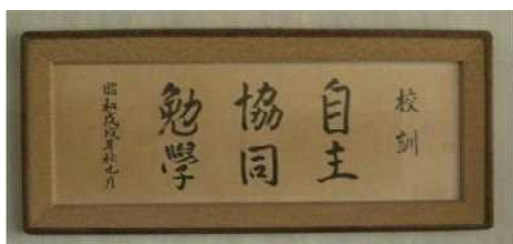 校訓
自主
協同
勉學
昭和戊戌年秋九月